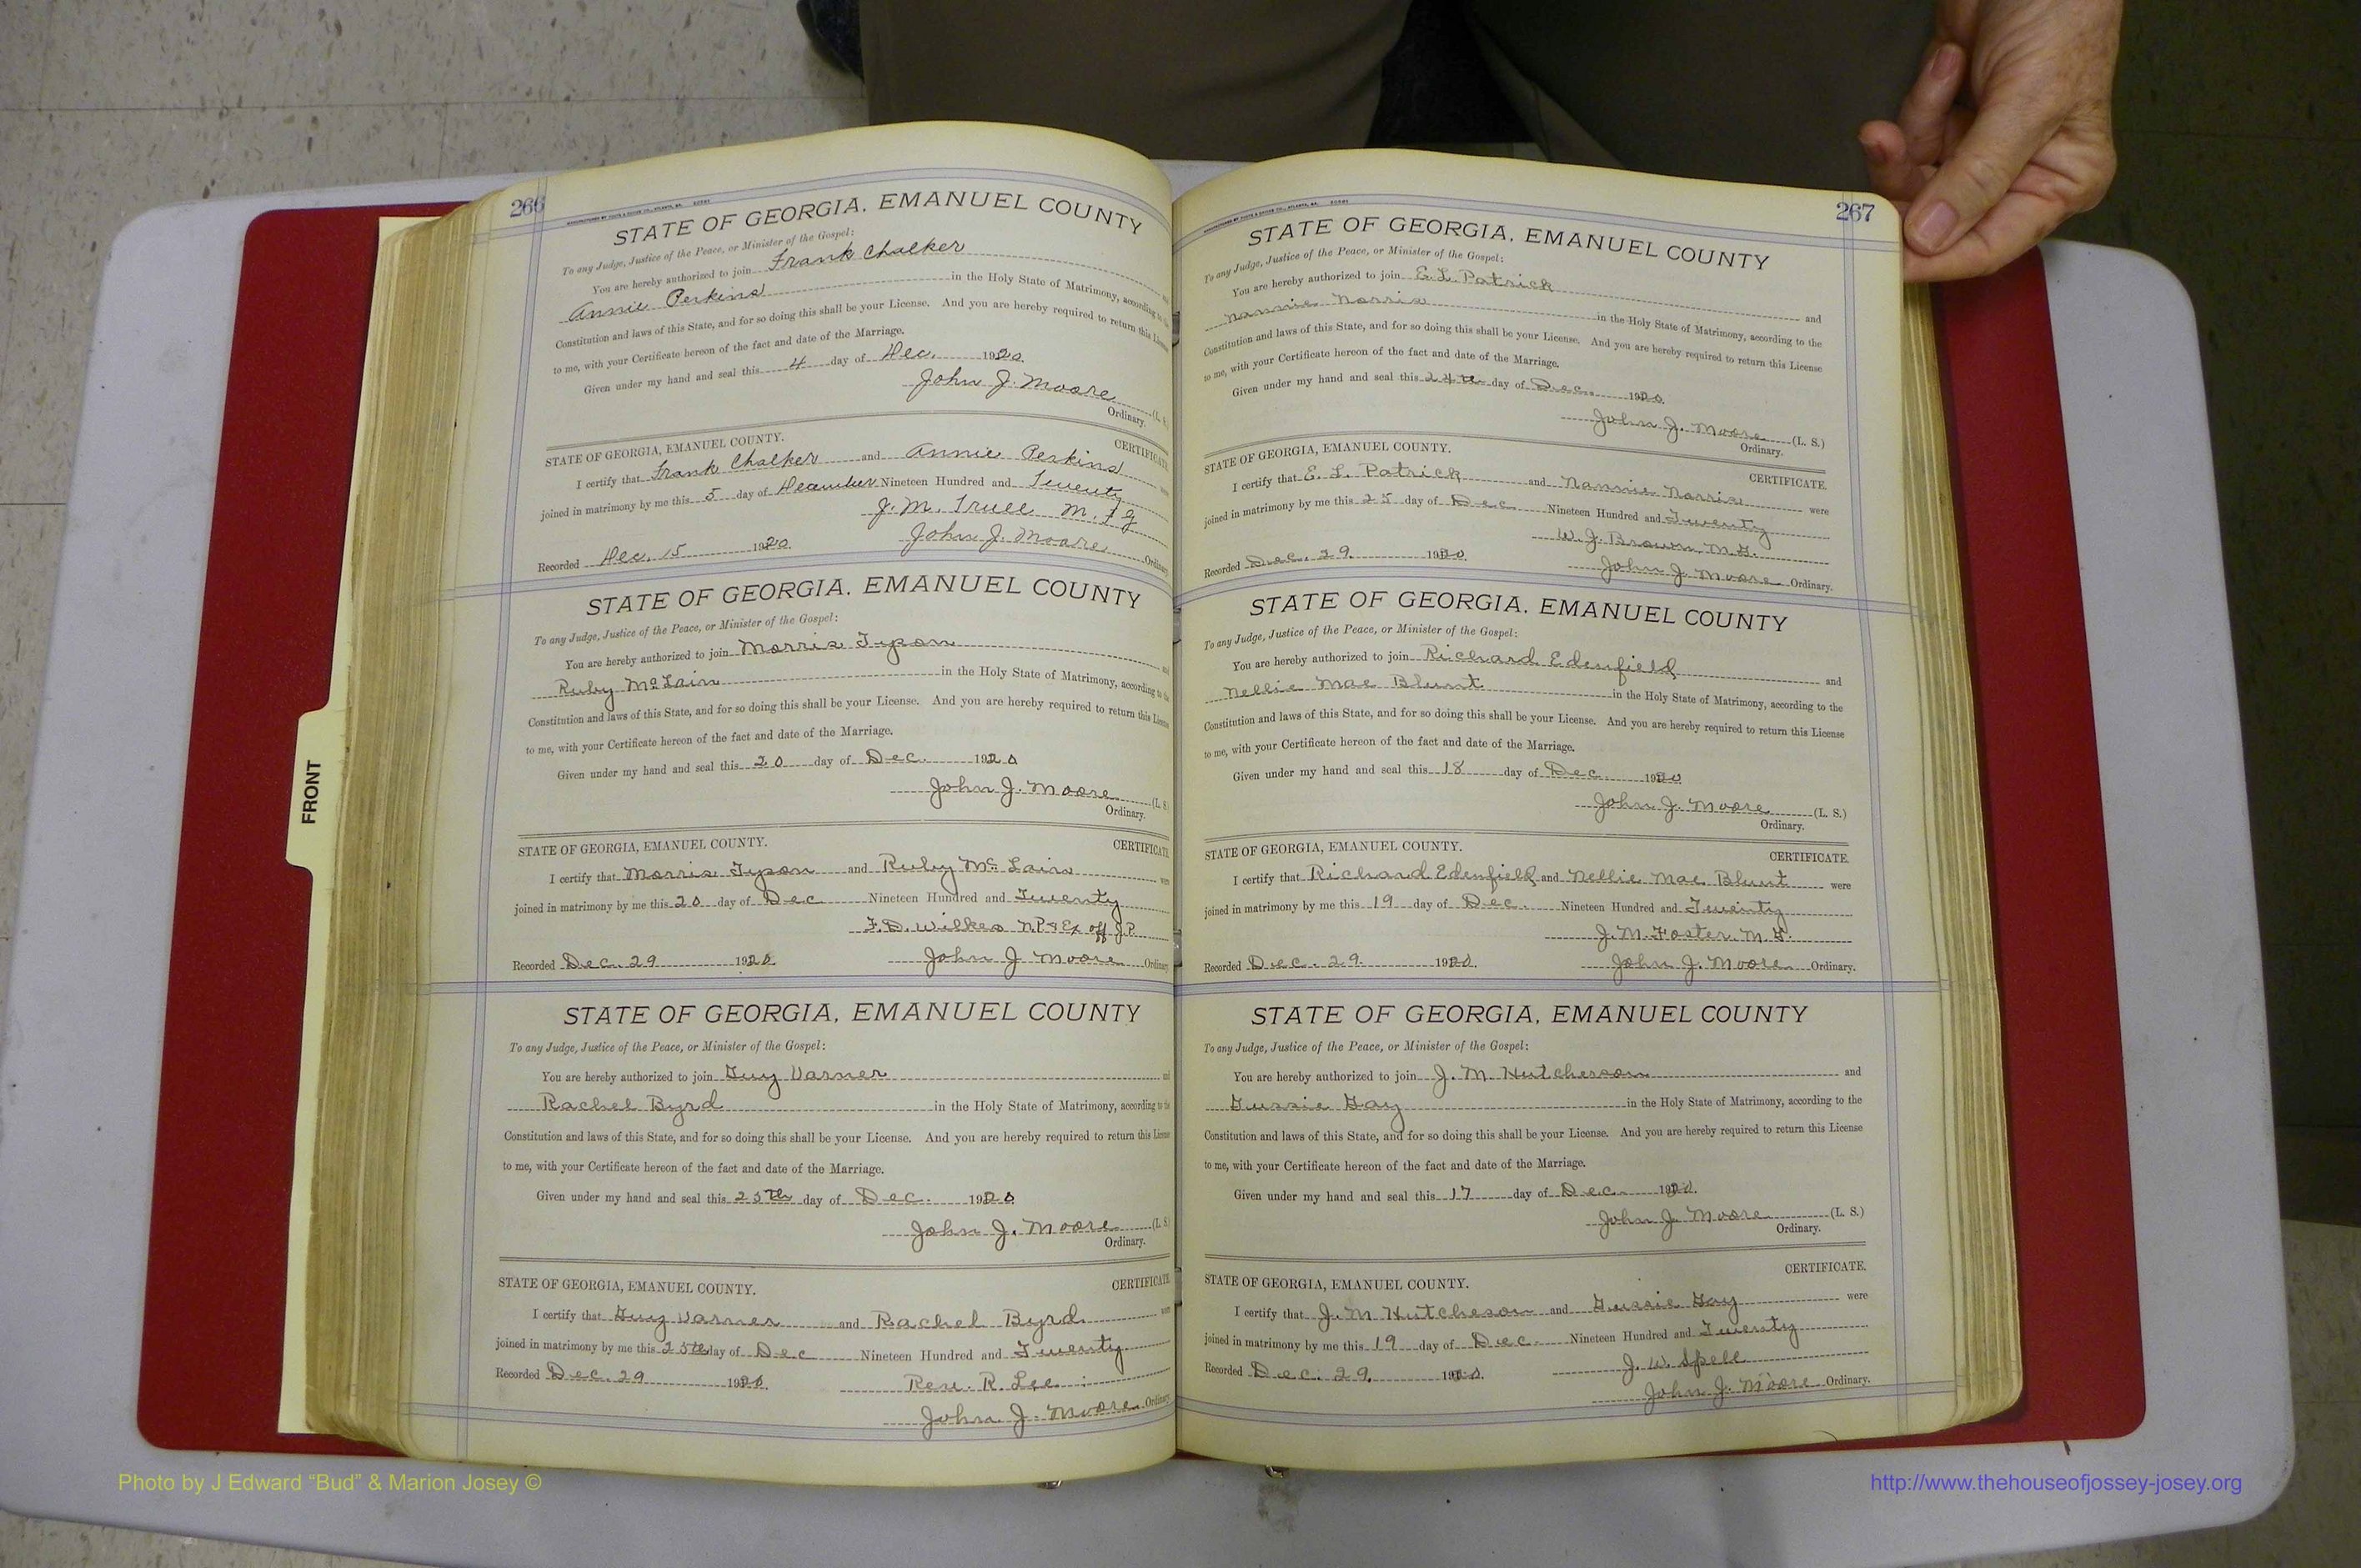 266
STATE OF GEORGIA, EMANUEL COUNTY
To any Judge, Justice of the Peace, or Minister of the Gospel:
You are hereby authorized to join Frank Chalker and
Annie Perkins in the Holy State of Matrimony, according to the
Constitution and laws of this State, and for so doing this shall be your License. And you are hereby required to return this License
to me, with your Certificate hereon of the fact and date of the Marriage.
Given under my hand and seal this 4 day of Dec. 1920
John J. Moore (L. S.)
Ordinary.
STATE OF GEORGIA, EMANUEL COUNTY. CERTIFICATE
I certify that Frank Chalker and Annie Perkins were
joined in matrimony by me this 5 day of December Nineteen Hundred and Twenty
J. M. Truell M. f g
Recorded Dec. 15 1920. John J. Moore Ordinary
STATE OF GEORGIA, EMANUEL COUNTY
To any Judge, Justice of the Peace, or Minister of the Gospel:
You are hereby authorized to join Morris Tyson and
Ruby McLain in the Holy State of Matrimony, according to the
Constitution and laws of this State, and for so doing this shall be your License. And you are hereby required to return this License
to me, with your Certificate hereon of the fact and date of the Marriage.
Given under my hand and seal this 20 day of Dec. 1920
John J. Moore (L. S.)
Ordinary.
STATE OF GEORGIA, EMANUEL COUNTY. CERTIFICATE
I certify that Morris Tyson and Ruby McLain were
joined in matrimony by me this 20 day of Dec Nineteen Hundred and Twenty
F. D. Wilkes N.P. & Ex off J.P.
Recorded Dec. 29 1920. John J. Moore Ordinary
STATE OF GEORGIA, EMANUEL COUNTY
To any Judge, Justice of the Peace, or Minister of the Gospel:
You are hereby authorized to join Guy Varner and
Rachel Byrd in the Holy State of Matrimony, according to the
Constitution and laws of this State, and for so doing this shall be your License. And you are hereby required to return this License
to me, with your Certificate hereon of the fact and date of the Marriage.
Given under my hand and seal this 25th day of Dec. 1920
John J. Moore (L. S.)
Ordinary.
STATE OF GEORGIA, EMANUEL COUNTY. CERTIFICATE
I certify that Guy Varner and Rachel Byrd were
joined in matrimony by me this 25th day of Dec Nineteen Hundred and Twenty
Recorded Dec. 29 1920. Rev. R. Lee
John J. Moore Ordinary
267
STATE OF GEORGIA, EMANUEL COUNTY
To any Judge, Justice of the Peace, or Minister of the Gospel:
You are hereby authorized to join E. L. Patrick and
Nannie Norris in the Holy State of Matrimony, according to the
Constitution and laws of this State, and for so doing this shall be your License. And you are hereby required to return this License
to me, with your Certificate hereon of the fact and date of the Marriage.
Given under my hand and seal this 24th day of Dec. 1920.
John J. Moore (L. S.)
Ordinary.
STATE OF GEORGIA, EMANUEL COUNTY. CERTIFICATE.
I certify that E. L. Patrick and Nannie Norris were
joined in matrimony by me this 25 day of Dec Nineteen Hundred and Twenty
W. J. Brown M.G.
Recorded Dec. 29. 1920. John J. Moore Ordinary.
STATE OF GEORGIA, EMANUEL COUNTY
To any Judge, Justice of the Peace, or Minister of the Gospel:
You are hereby authorized to join Richard Edenfield and
Nellie Mae Blunt in the Holy State of Matrimony, according to the
Constitution and laws of this State, and for so doing this shall be your License. And you are hereby required to return this License
to me, with your Certificate hereon of the fact and date of the Marriage.
Given under my hand and seal this 18 day of Dec 1920
John J. Moore (L. S.)
Ordinary.
STATE OF GEORGIA, EMANUEL COUNTY. CERTIFICATE.
I certify that Richard Edenfield and Nellie Mae Blunt were
joined in matrimony by me this 19 day of Dec. Nineteen Hundred and Twenty
J. M. Foster M.G.
Recorded Dec. 29. 1920. John J. Moore Ordinary.
STATE OF GEORGIA, EMANUEL COUNTY
To any Judge, Justice of the Peace, or Minister of the Gospel:
You are hereby authorized to join J. M. Hutcheson and
Gussie Gay in the Holy State of Matrimony, according to the
Constitution and laws of this State, and for so doing this shall be your License. And you are hereby required to return this License
to me, with your Certificate hereon of the fact and date of the Marriage.
Given under my hand and seal this 17 day of Dec 1920.
John J. Moore (L. S.)
Ordinary.
STATE OF GEORGIA, EMANUEL COUNTY. CERTIFICATE.
I certify that J. M. Hutcheson and Gussie Gay were
joined in matrimony by me this 19 day of Dec. Nineteen Hundred and Twenty
Recorded Dec. 29. 1920. J. W. Spell
John J. Moore Ordinary.
FRONT
Photo by J Edward “Bud” & Marion Josey ©
http://www.thehouseofjossey-josey.org